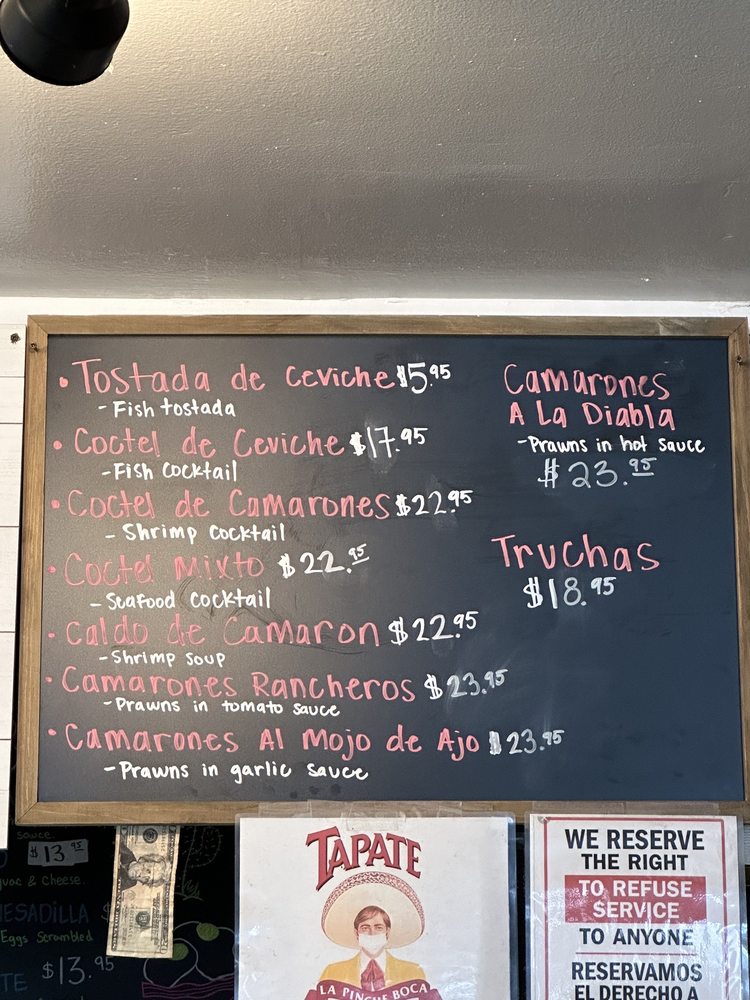 • Tostada de Ceviche $5.95
- Fish tostada
• Coctel de Ceviche $17.95
- Fish Cocktail
• Coctel de Camarones $22.95
- Shrimp Cocktail
• Coctel Mixto $22.95
- Seafood Cocktail
• Caldo de Camaron $22.95
- Shrimp Soup
• Camarones Rancheros $23.95
- Prawns in tomato sauce
• Camarones Al Mojo de Ajo $23.95
- Prawns in garlic sauce
Camarones
A La Diabla
- Prawns in hot sauce
$23.95
Truchas
$18.95
sauce
$13.95
& Cheese
Eggs Scrambled
$13.95
TAPATE
LA PINCHE BOCA
WE RESERVE
THE RIGHT
TO REFUSE
SERVICE
TO ANYONE
RESERVAMOS
EL DERECHO A